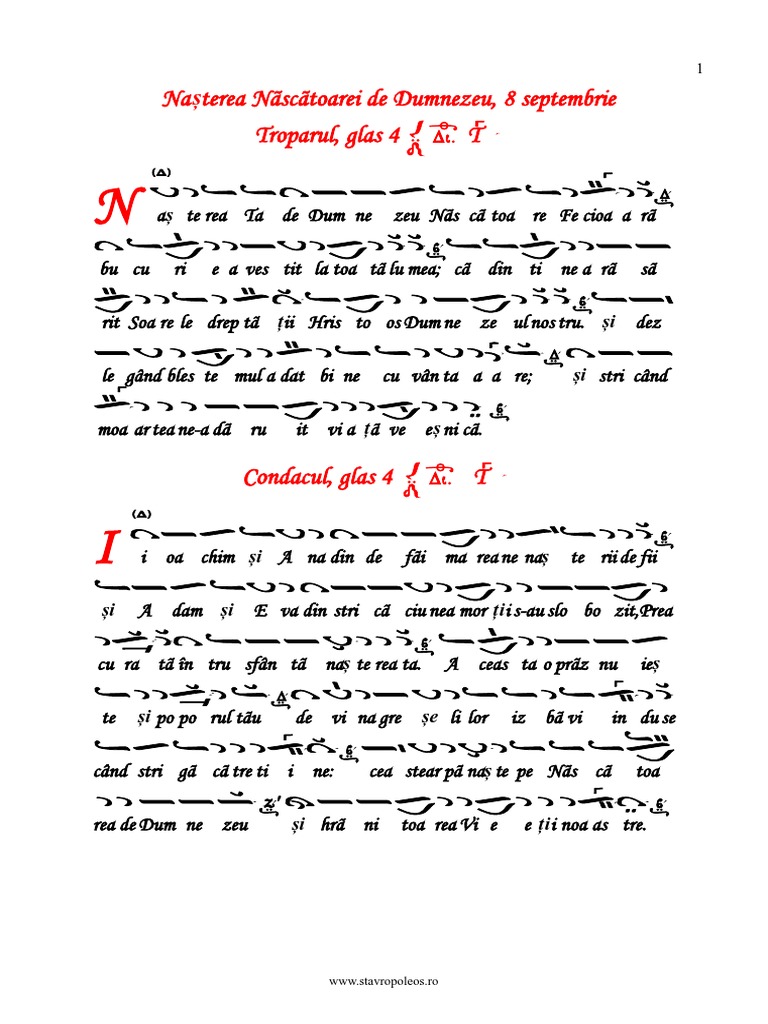 1
Nașterea Născătoarei de Dumnezeu, 8 septembrie
Troparul, glas 4
(Δ)
N aș te rea Ta de Dum ne zeu Năs că toa re Fe cioa a ră
bu cu ri e a ves tit la toa tă lu mea; că din ti ne a ră să
rit Soa re le drep tă ții Hris to os Dum ne ze ul nos tru. și dez
le gând bles te mul a dat bi ne cu vân ta a a re; și stri când
moa ar tea ne-a dă ru it vi a ță ve eș ni că.
Condacul, glas 4
(Δ)
I i oa chim și A na din de făi ma rea ne naș te rii de fii
și A dam și E va din stri că ciu nea mor ții i s-au slo bo zit, Prea
cu ra tă în tru sfân tă naș te rea ta. A ceas ta o prăz nu ieș
te și po po rul tău de vi na gre șe li lor iz bă vi in du se
când stri gă că tre ti i ne: cea stear pă naș te pe Năs că toa
rea de Dum ne zeu și hră ni toa rea Vi e e ții noa as tre.
www.stavropoleos.ro